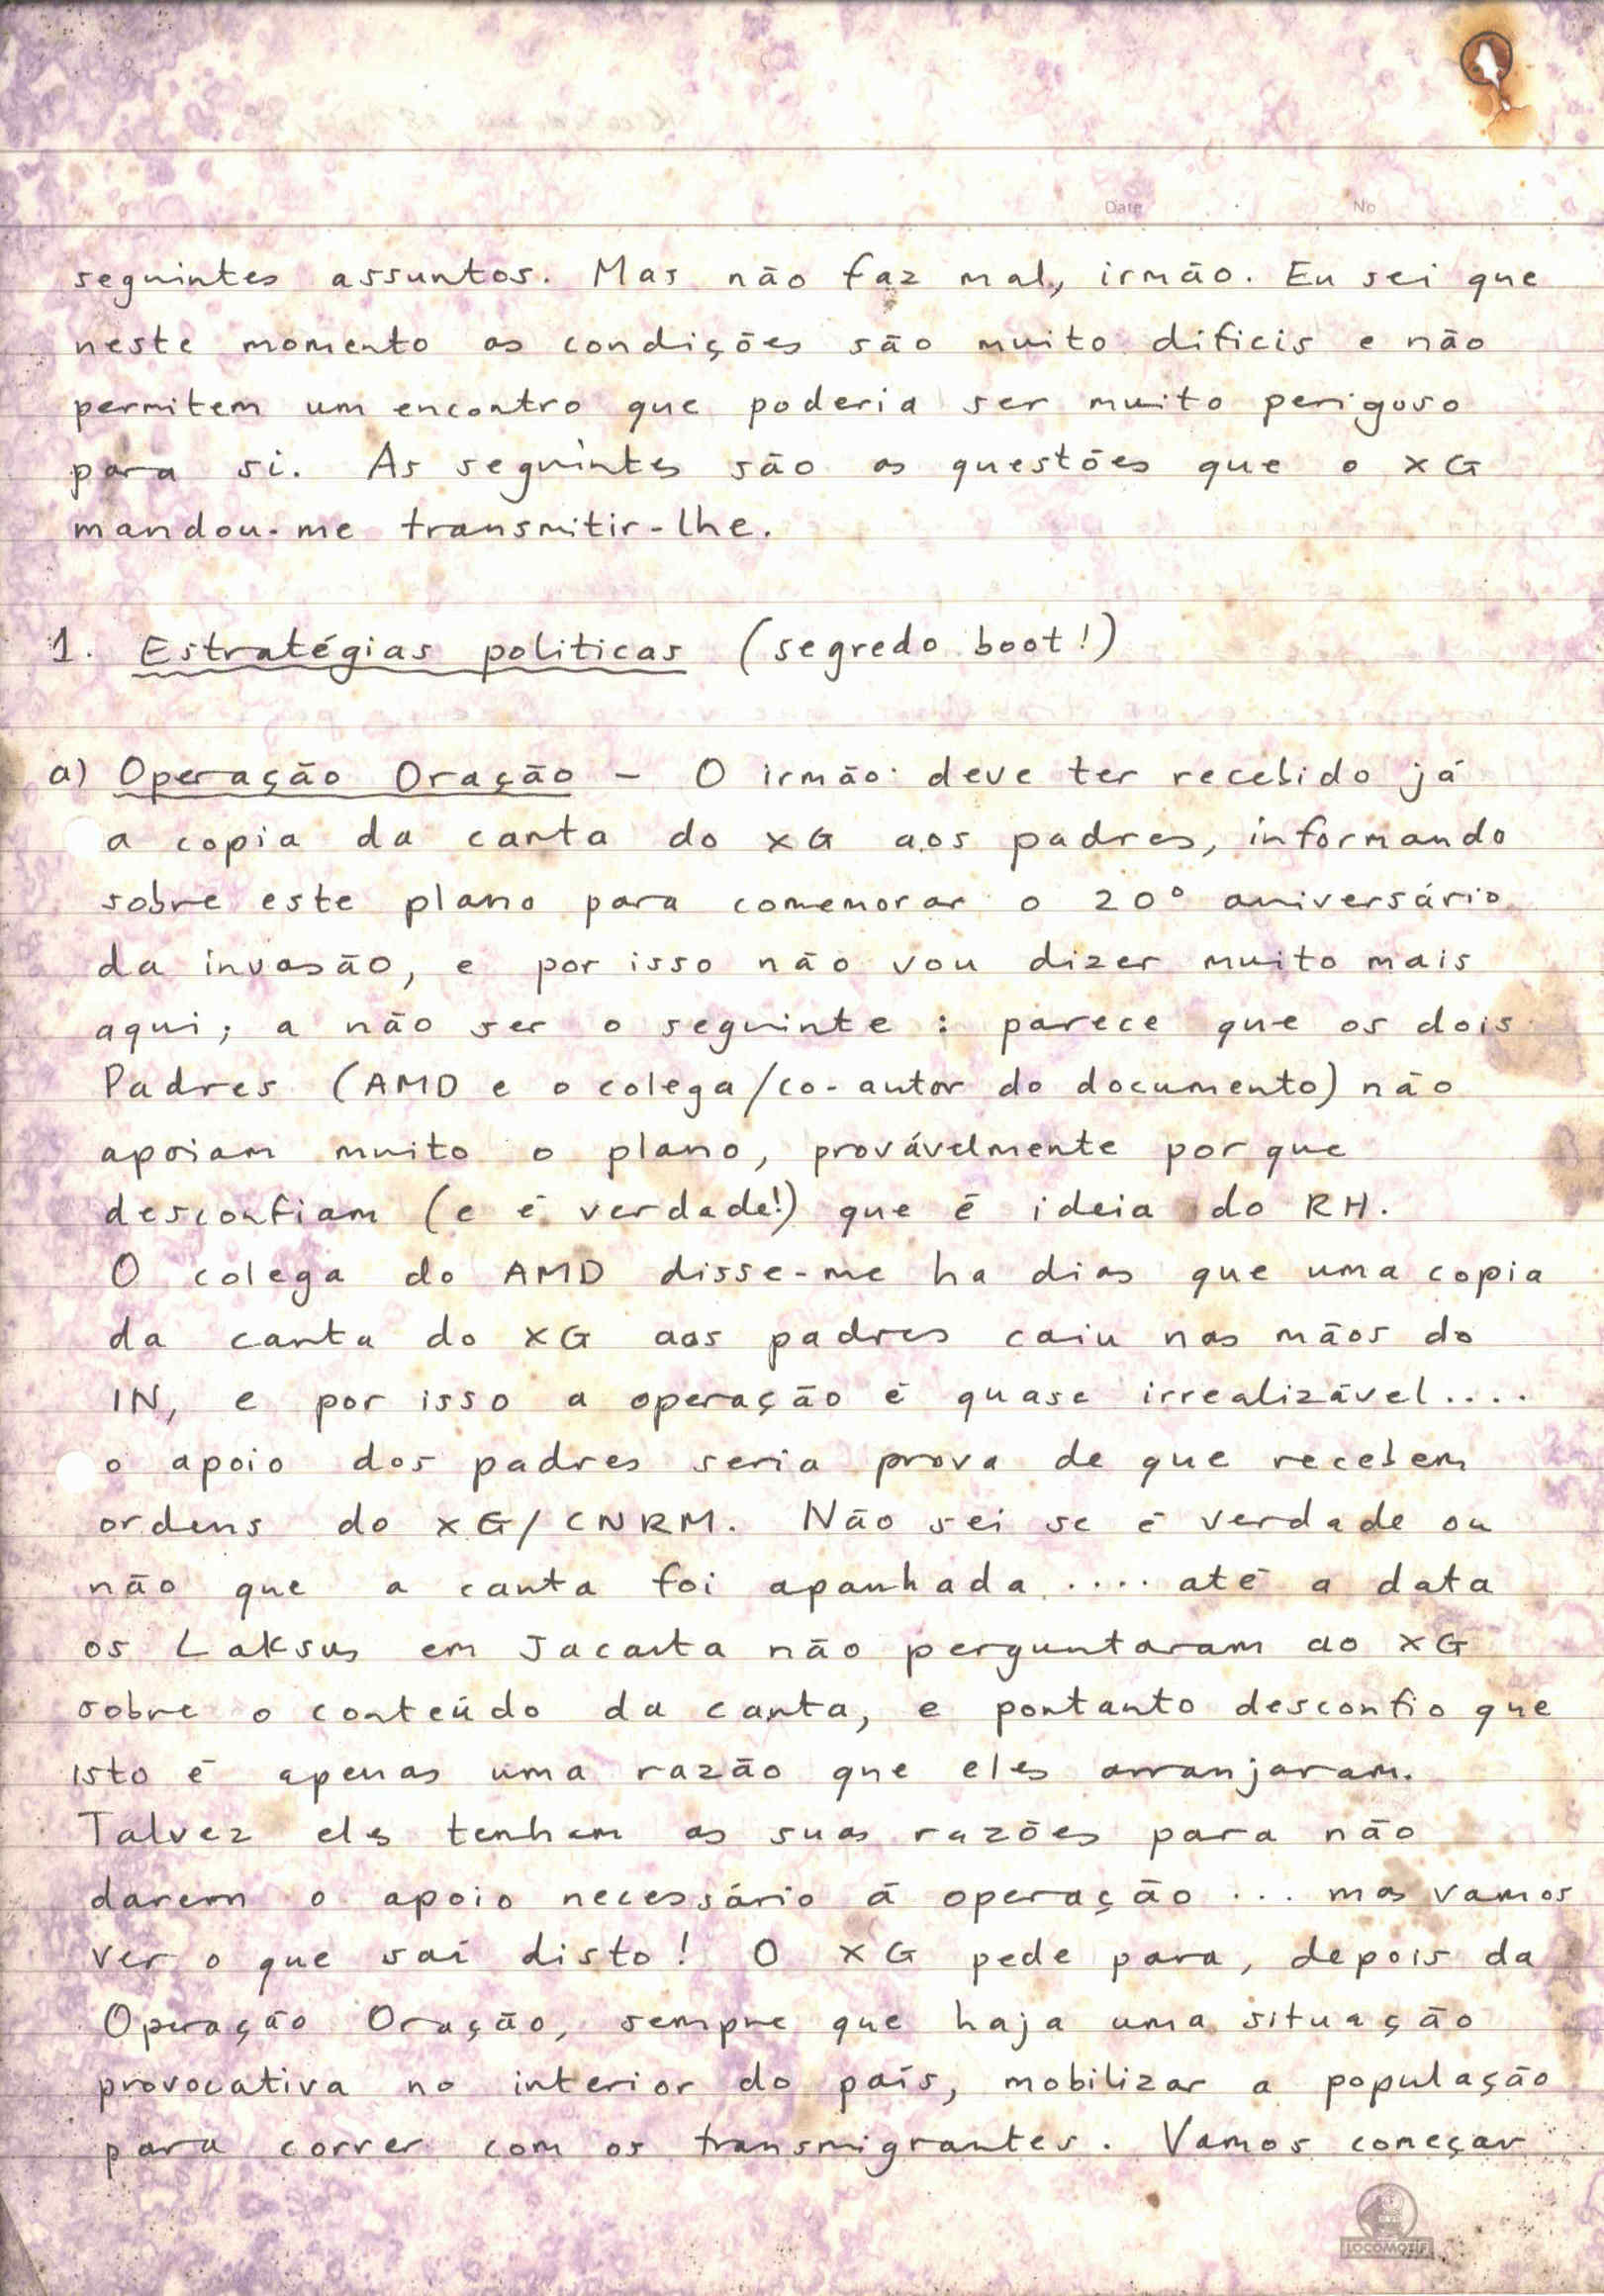 Date No
seguintes assuntos. Mas não faz mal, irmão. Eu sei que
neste momento as condições são muito dificis e não
permitem um encontro que poderia ser muito perigoso
para si. As seguintes são as questões que o XG
mandou-me transmitir-lhe.
1. Estratégias politicas (segredo boot!)
a) Operação Oração - O irmão deve ter recebido já
a copia da carta do XG aos padres, informando
sobre este plano para comemorar o 20° aniversário
da invasão, e por isso não vou dizer muito mais
aqui; a não ser o seguinte : parece que os dois
Padres (AMD e o colega/co-autor do documento) não
apoiam muito o plano, provávelmente porque
desconfiam (e é verdade!) que é ideia do RH.
O colega do AMD disse-me ha dias que uma copia
da carta do XG aos padres caiu nas mãos do
IN, e por isso a operação é quase irrealizável....
o apoio dos padres seria prova de que recebem
ordens do XG/CNRM. Não sei se é verdade ou
não que a carta foi apanhada .... até a data
os Laksus em Jacarta não perguntaram ao XG
sobre o conteúdo da carta, e portanto desconfio que
isto é apenas uma razão que eles arranjaram.
Talvez eles tenham as suas razões para não
darem o apoio necessário á operação ... mas vamos
ver o que sai disto! O XG pede para, depois da
Operação Oração, sempre que haja uma situação
provocativa no interior do país, mobilizar a população
para correr com os transmigrantes. Vamos começar
LOCOMOTIF